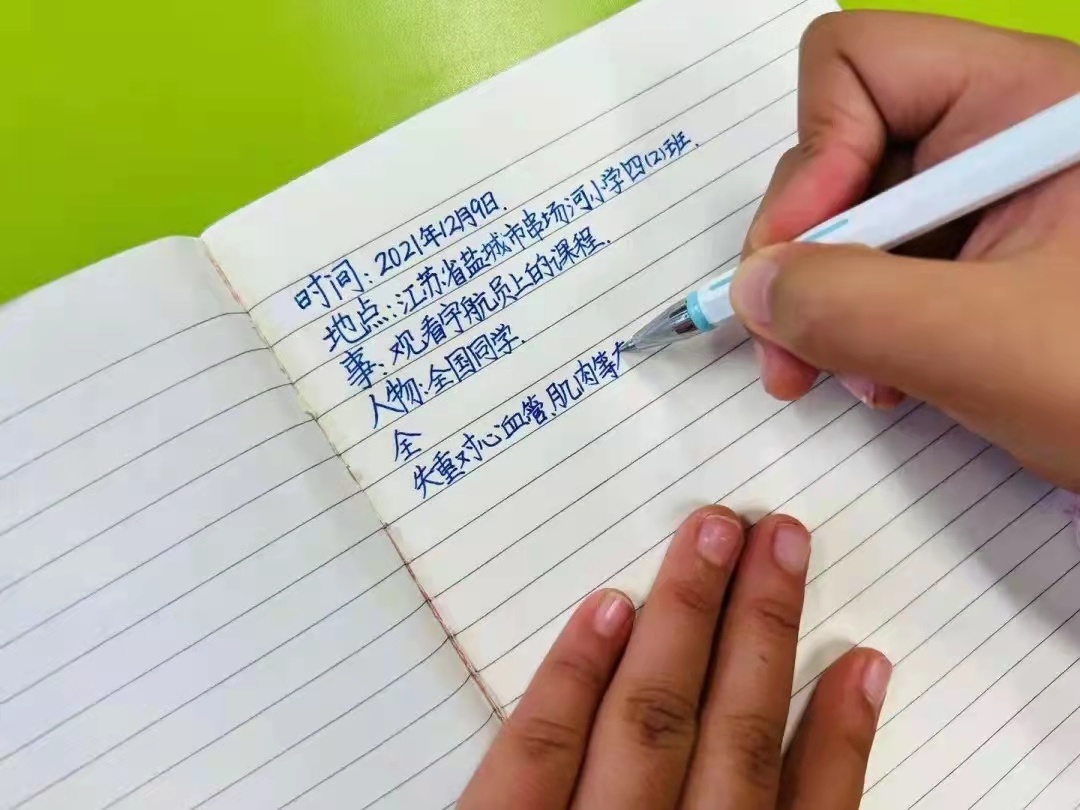 时间：2021年12月9日.
地点：江苏省盐城市串场河小学四(2)班.
事：观看宇航员上的课程.
人物：全国同学.
全
失重对心血管、肌肉等